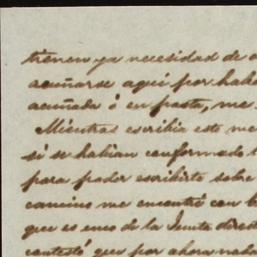 tienen ya necesidad de
acuñarse aqui por habe
acuñada ó en pasta, me
Mientras escribia este me
si se habian conformado
para poder escribirte sobre
camino me encontré con
que es uno de la Junta direct
contestó que por ahora nada